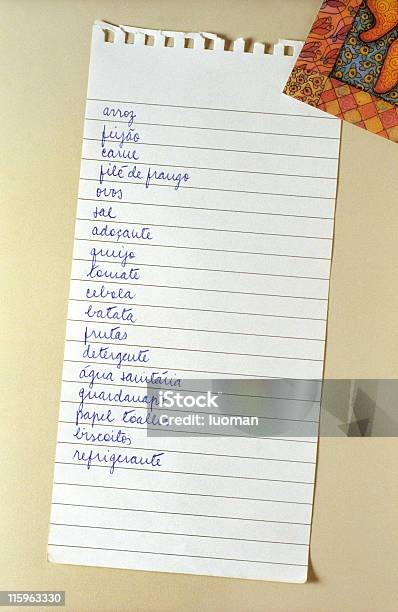 arroz
feijão
carne
filé de frango
ovos
sal
adoçante
queijo
tomate
cebola
batata
frutas
detergente
água sanitária
papel
biscoitos
refrigerante
iStock
Credit: luoman
115963330